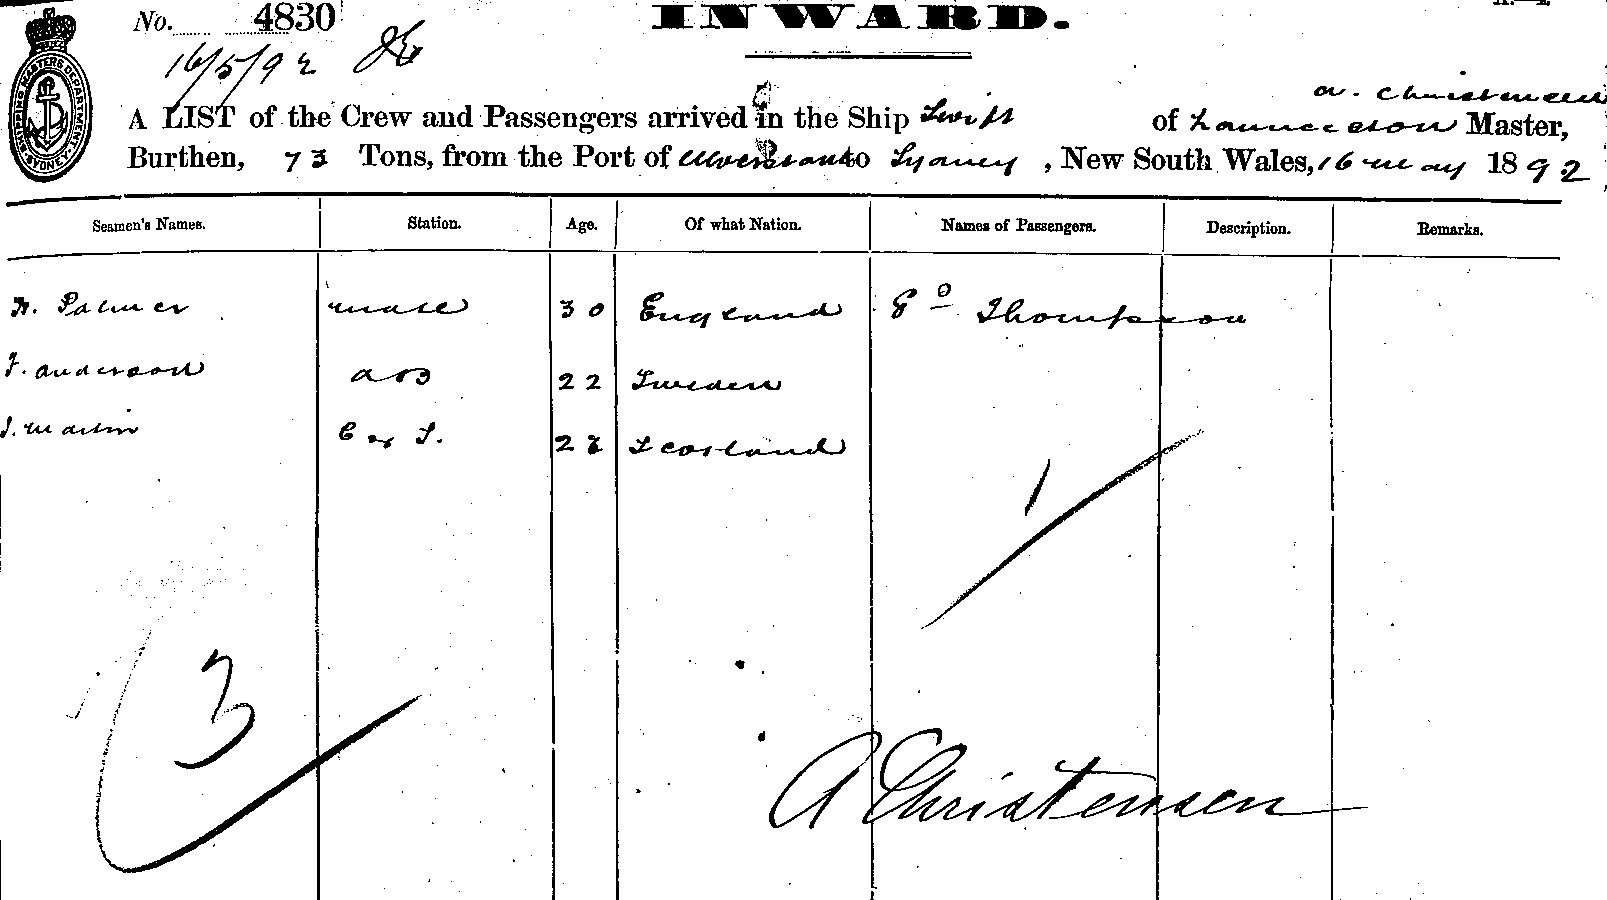 No. 4830
INWARD.
16/5/92
A LIST of the Crew and Passengers arrived in the Ship Swift of Launceston A. Christensen Master,
Burthen, 73 Tons, from the Port of Ulverstone to Sydney, New South Wales, 16 May 1892
Seamen's Names. Station. Age. Of what Nation. Names of Passengers. Description. Remarks.
H. Palmer mate 30 England Eo Thompson
F. Anderson AB 22 Sweden
J. Martin C & S. Scotland
1
3
A Christensen